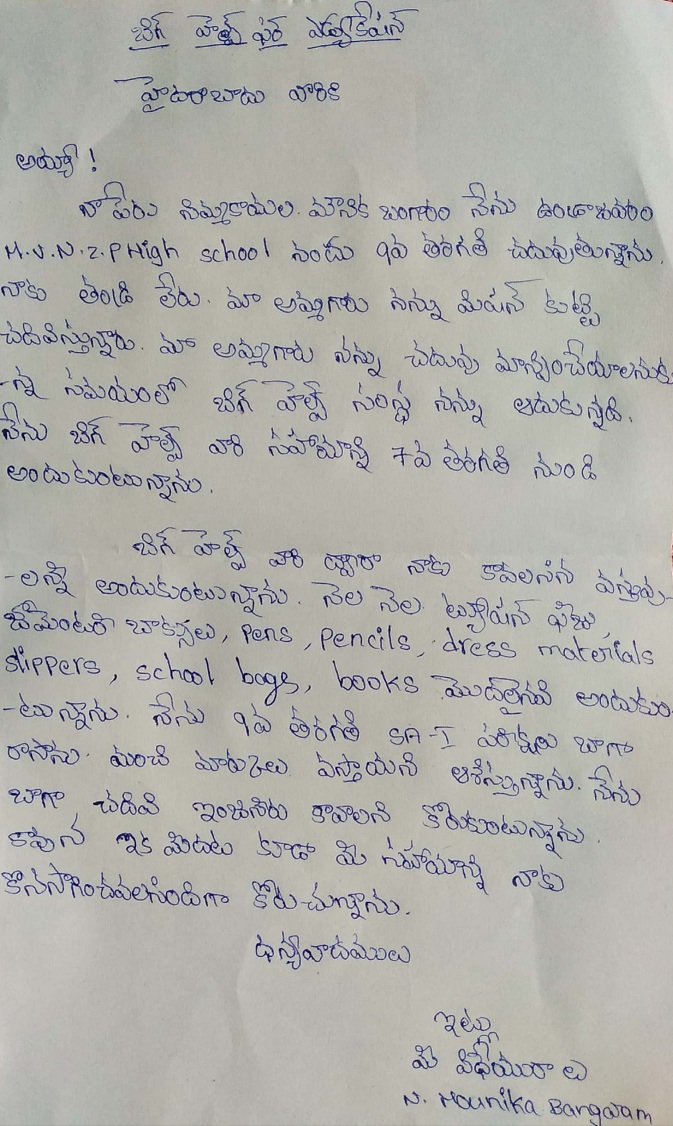 బిగ్ హెల్ప్ ఫర్ ఎడ్యుకేషన్
హైదరాబాదు వారికి
అయ్యా !
నా పేరు నిమ్మకాయల. మౌనిక బంగారం నేను ఉండ్రాజవరం
M.V.N.Z.P High school నందు 9వ తరగతి చదువుతున్నాను.
నాకు తండ్రి లేరు. మా అమ్మగారు నన్ను మిషన్ కుట్టి
చదివిస్తున్నారు. మా అమ్మగారు నన్ను చదువు మాన్పించేయాలనుకు
-న్న సమయంలో బిగ్ హెల్ప్ సంస్థ నన్ను ఆదుకున్నది.
నేను బిగ్ హెల్ప్ వారి సహాయాన్ని 7వ తరగతి నుండి
అందుకుంటున్నాను.
బిగ్ హెల్ప్ వారి ద్వారా నాకు కావలసిన వస్తువు-
-లన్ని అందుకుంటున్నాను. నెల నెల ట్యూషన్ ఫీజు,
జామెంటరీ బాక్సులు, pens, pencils, dress materials
slippers, school bags, books మొదలైనవి అందుకుం
-టున్నాను. నేను 9వ తరగతి SA-I పరీక్షలు బాగా
రాసాను. మంచి మార్కులు వస్తాయని ఆశిస్తున్నాను. నేను
బాగా చదివి ఇంజనీరు కావాలని కోరుకుంటున్నాను.
కావున ఇక మీదట కూడా మీ సహాయాన్ని నాకు
కొనసాగించవలసిందిగా కోరుచున్నాను.
ధన్యవాదములు
ఇట్లు
మీ విధేయురాలు
N. Mounika Bangaram